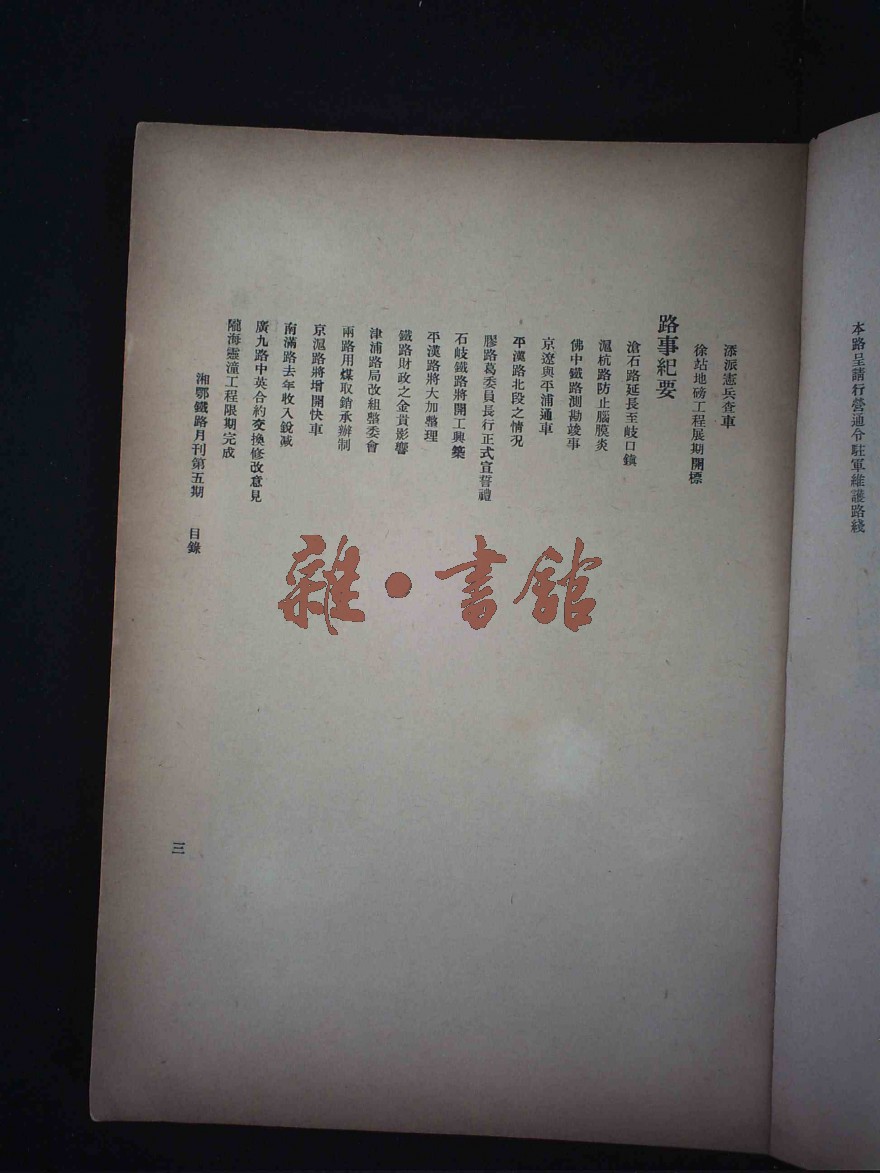 本路呈請行營通令駐軍維護路綫
添派憲兵查車
徐站地磅工程展期開標
路事紀要
滄石路延長至岐口鎮
滬杭路防止腦膜炎
佛中鐵路測勘竣事
京遼與平浦通車
平漢路北段之情况
膠路葛委員長行正式宣誓禮
石岐鐵路將開工興築
平漢路將大加整理
鐵路財政之金貴影響
津浦路局改組整委會
兩路用煤取銷承辦制
京滬路將增開快車
南滿路去年收入銳减
廣九路中英合約交換修改意見
隴海靈潼工程限期完成
湘鄂鐵路月刊第五期 目錄
三
雜·書館